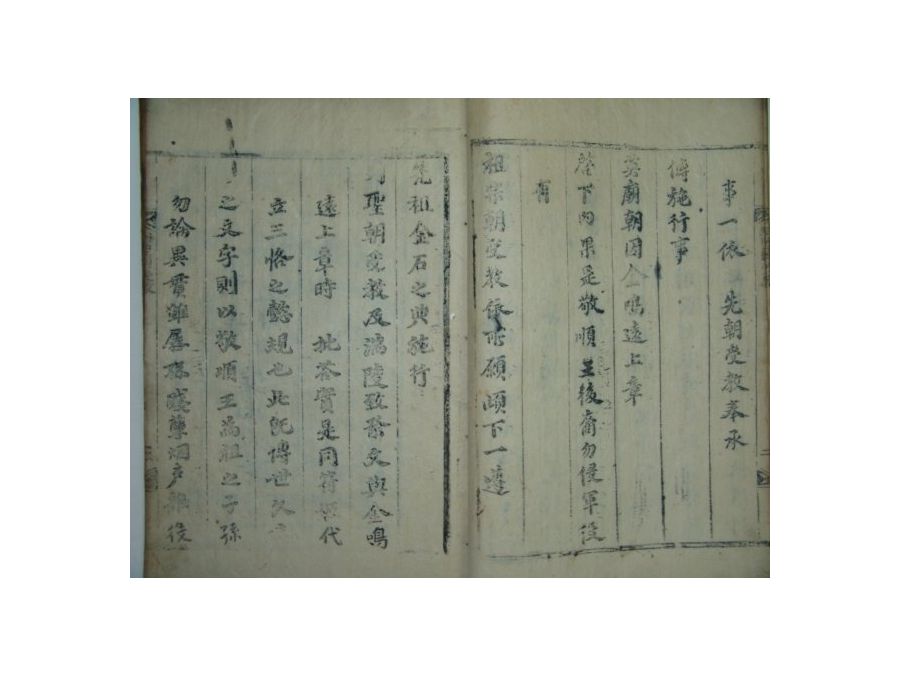 事一依 先朝受教奉承
傳施行事
英廟朝因金鳴遠上章
啓下內果是敬順王後裔勿侵軍役
有
祖宗朝受教依所願頉下一遵
先祖金石之典施行
聖朝受教及 陵致祭文與金鳴
遠上章時 批答實是同符 代
立三恪之懿規也此旣傳世久
之文字則以敬順王爲祖之子孫
勿論異貫雖孱殘孽烟戶雜役